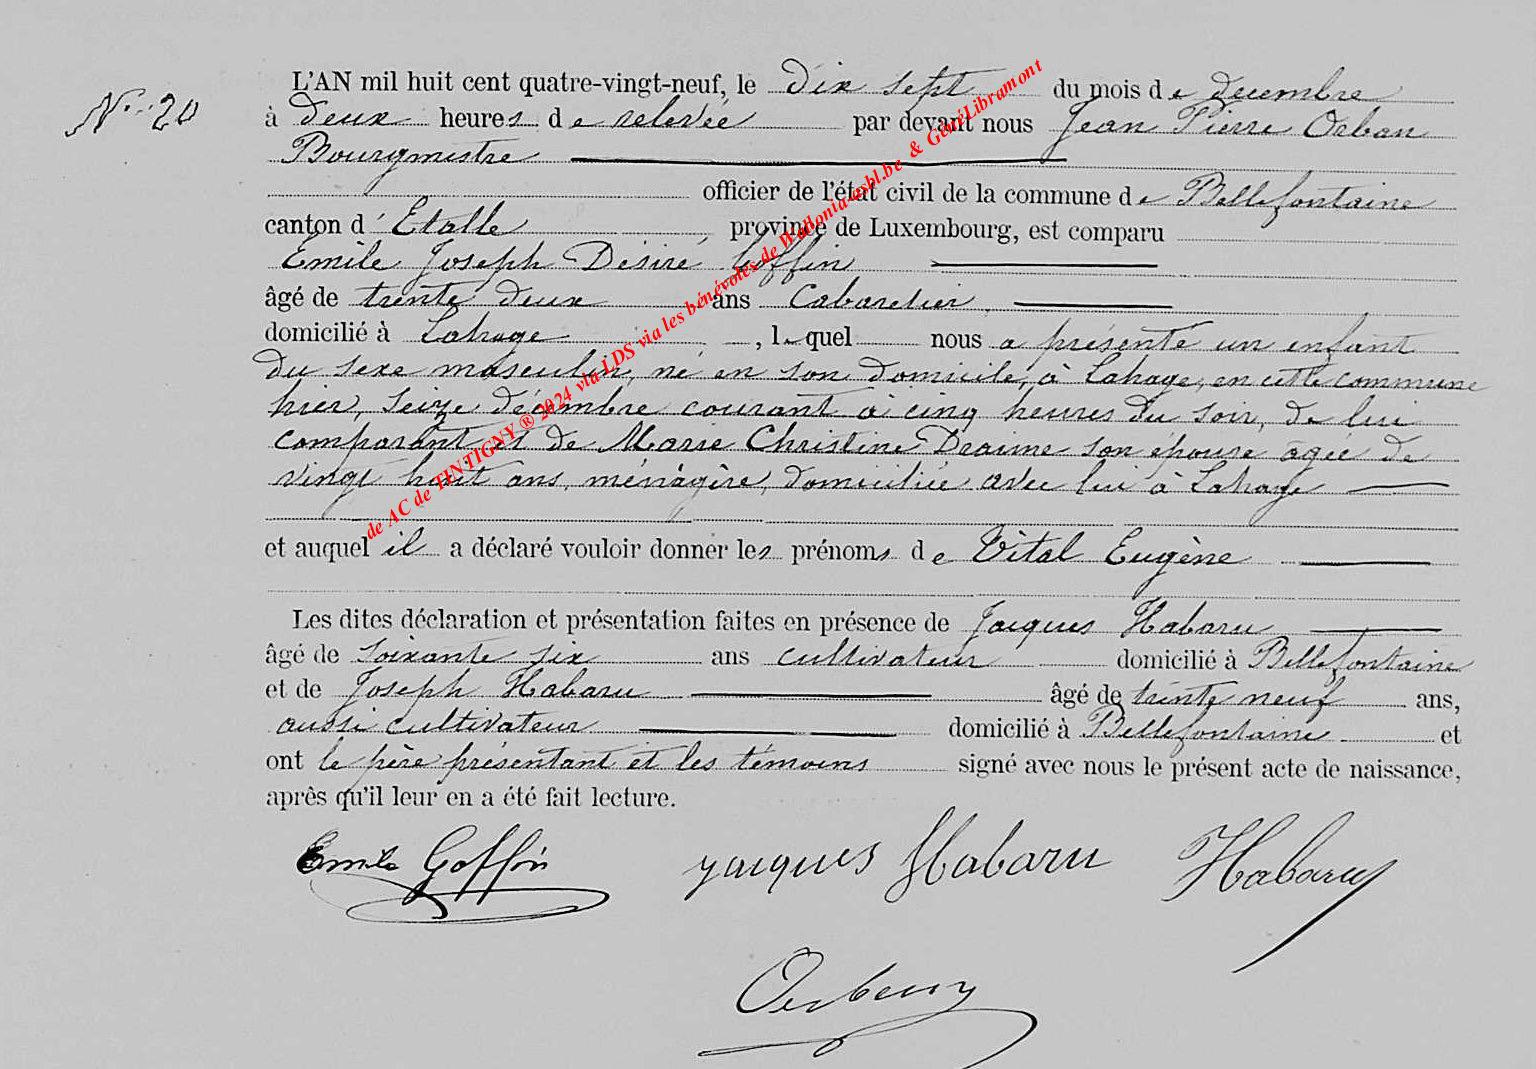 N° 20
L'AN mil huit cent quatre-vingt-neuf, le dix sept du mois de decembre
à deux heures de relevée par devant nous Jean Pierre Orban
Bourgmestre
officier de l'état civil de la commune de Bellefontaine
canton d'Etalle province de Luxembourg, est comparu
Emile Joseph Désiré Goffin
âgé de trente deux ans Cabaretier
domicilié à Lahage, lequel nous a présenté un enfant
du sexe masculin, né en son domicile, à Lahage, en cette commune
hier, seize décembre courant à cinq heures du soir, de lui
comparant et de Marie Christine Draime son épouse âgée de
vingt huit ans, ménagère, domiciliée avec lui à Lahage
et auquel il a déclaré vouloir donner les prénoms de Vital Eugène
Les dites déclaration et présentation faites en présence de Jacques Habaru
âgé de soixante six ans cultivateur domicilié à Bellefontaine
et de Joseph Habaru âgé de trente neuf ans,
aussi cultivateur domicilié à Bellefontaine et
ont le père présentant et les témoins signé avec nous le présent acte de naissance,
après qu'il leur en a été fait lecture.
Emile Goffin Jacques Habaru Habaru
de AC de TINTIGNY ® 2024 via LDS via les bénévoles de Wallonia-asbl.be & GénéLibramont